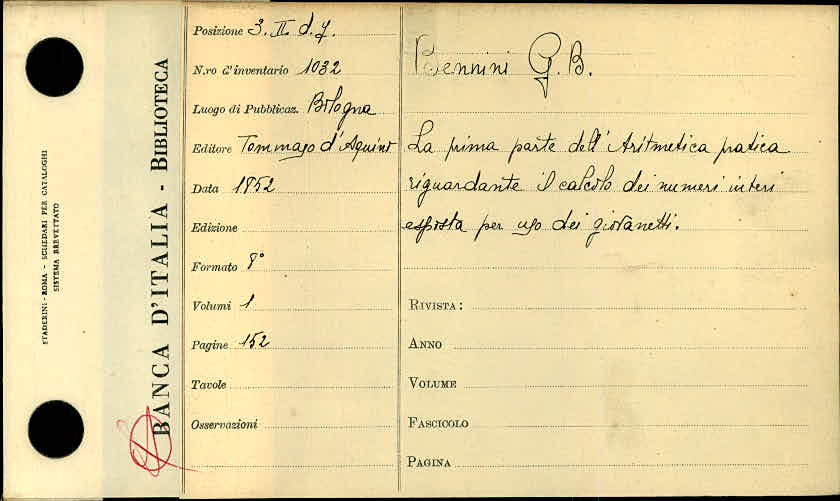 STADERINI - ROMA - SCHEDARI PER CATALOGHI
SISTEMA BREVETTATO
BANCA D'ITALIA - BIBLIOTECA
Posizione 3. II. d. 7.
N.ro d'inventario 1032
Luogo di Pubblicaz. Bologna
Editore Tommaso d'Aquino
Data 1852
Edizione
Formato 8°
Volumi 1
Pagine 152
Tavole
Osservazioni
Bennini G. B.
La prima parte dell'Aritmetica pratica
riguardante il calcolo dei numeri interi
esposta per uso dei giovanetti.
RIVISTA:
ANNO
VOLUME
FASCICOLO
PAGINA